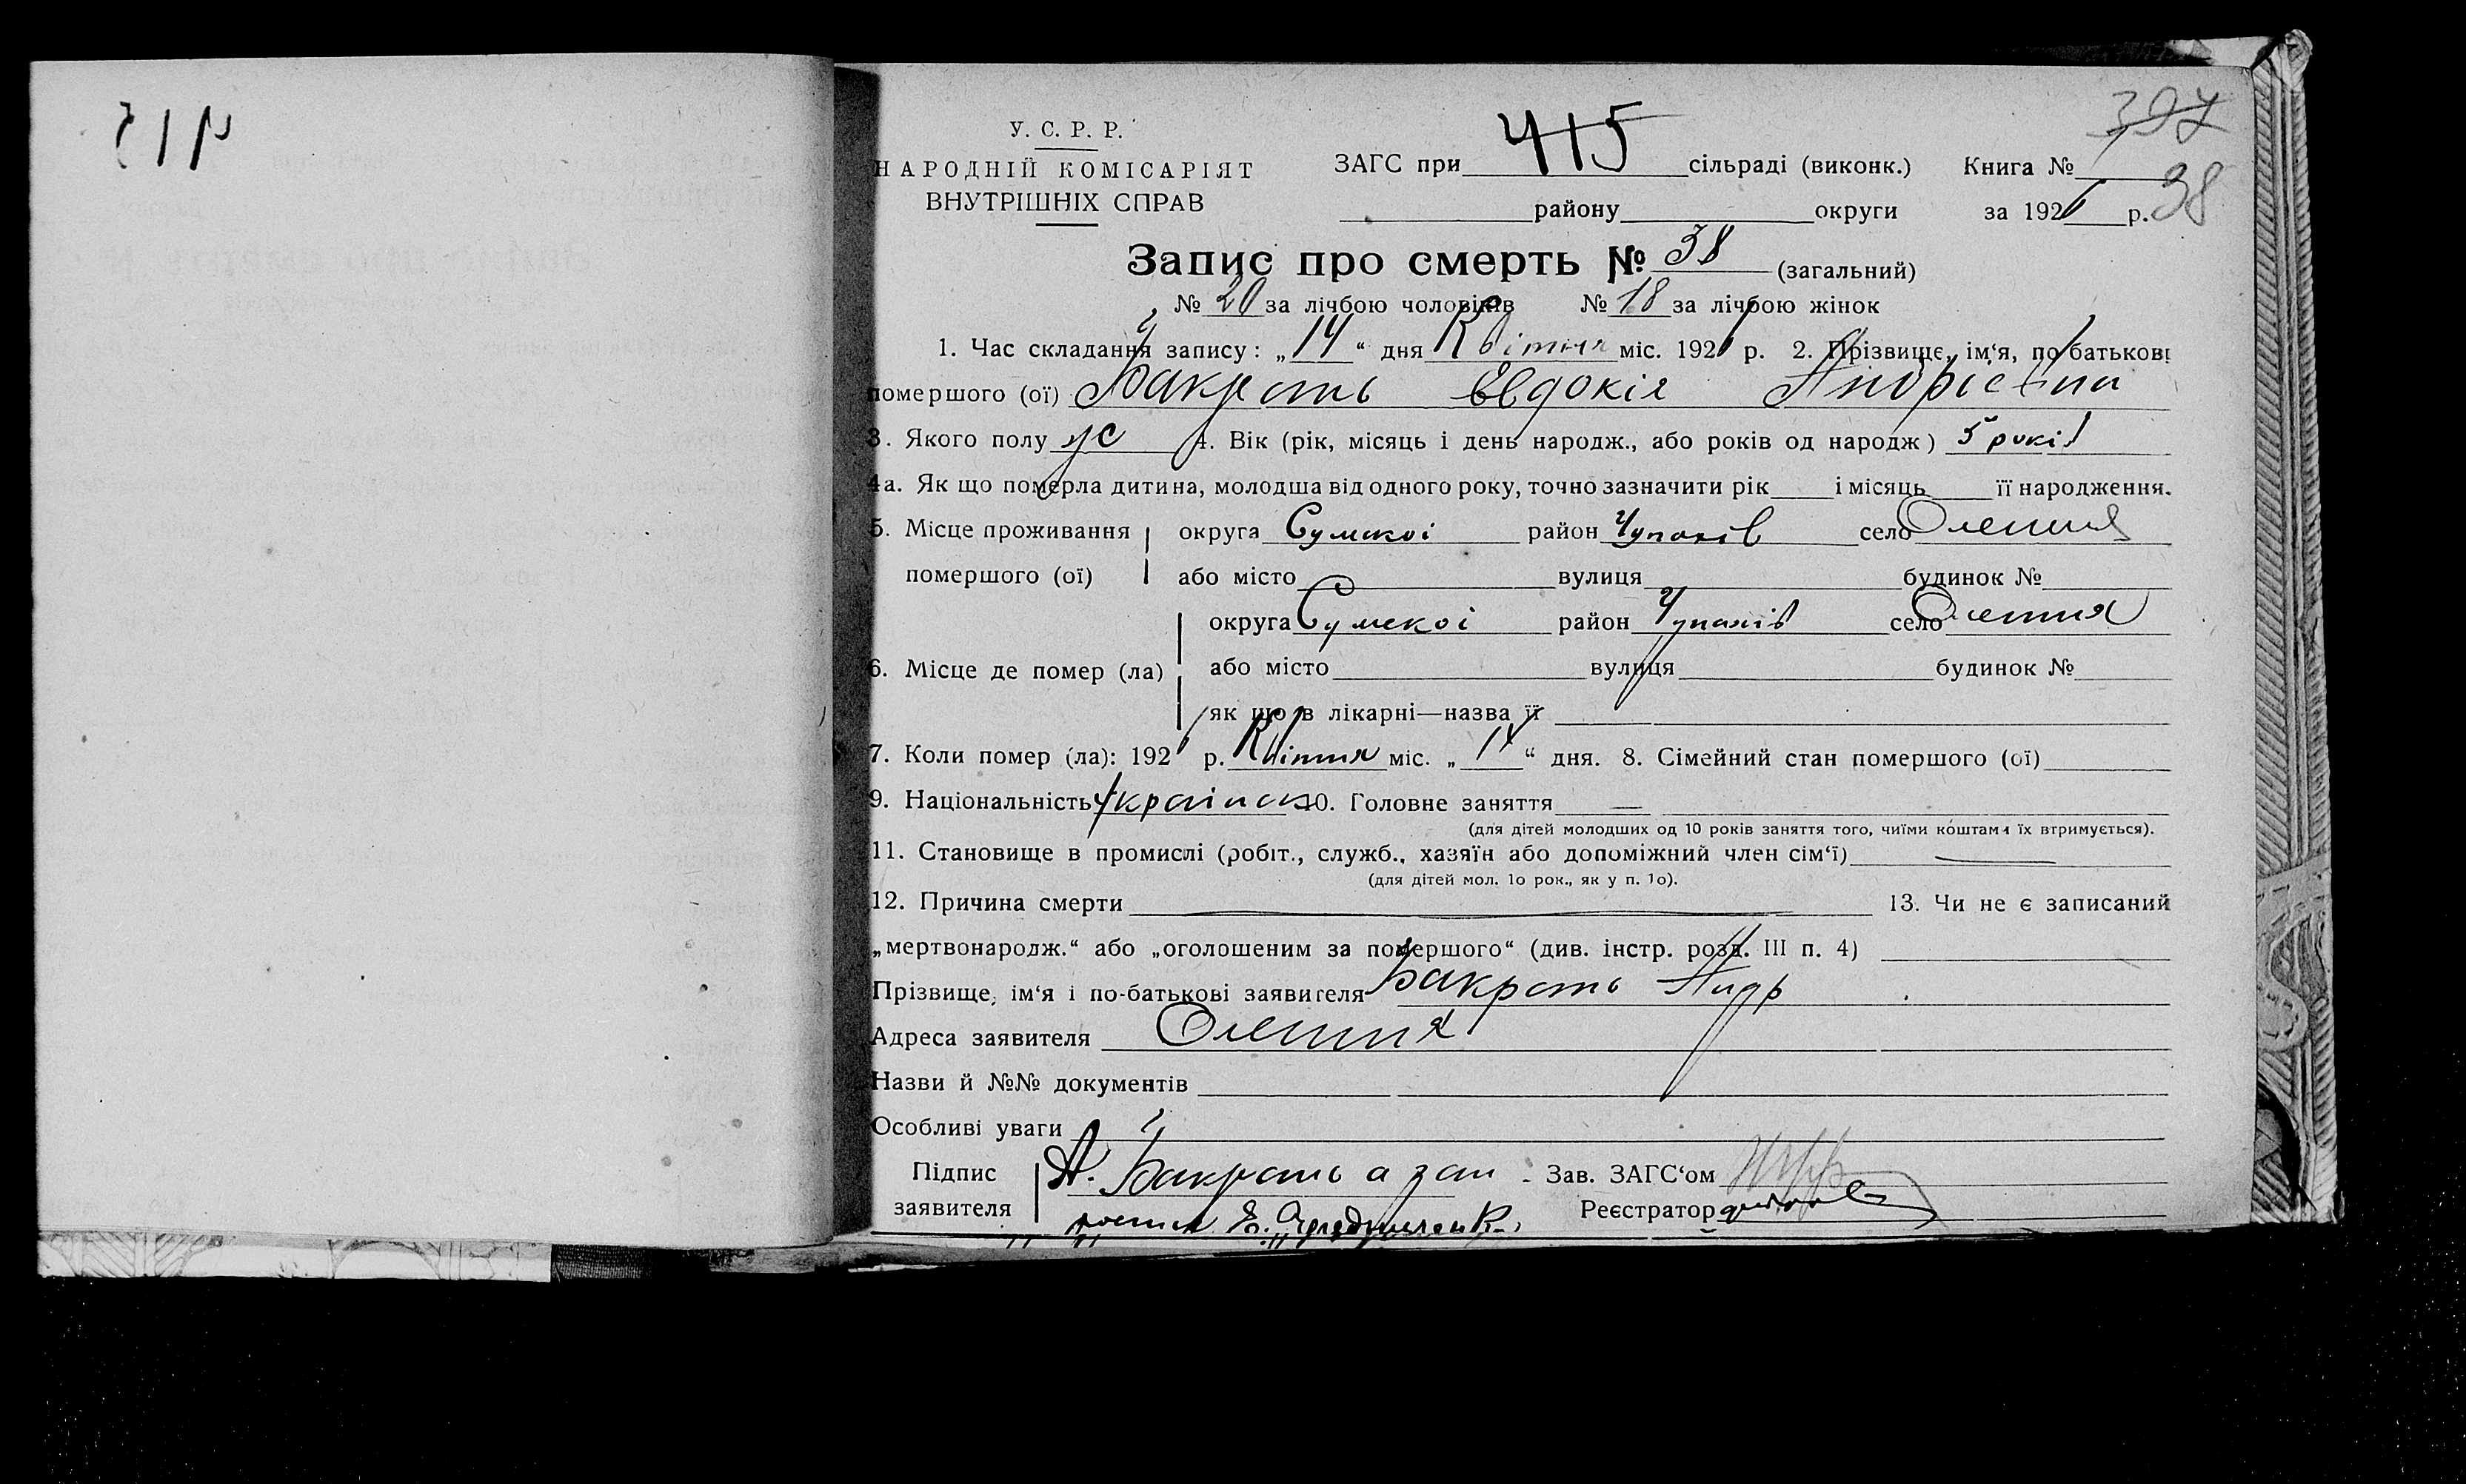 415
397
У. С. Р. Р.
НАРОДНІЙ КОМІСАРІЯТ
ВНУТРІШНІХ СПРАВ
ЗАГС при 415 сільраді (виконк.) Книга №
району округи за 1926 р. 38
Запис про смерть № 38 (загальний)
№ 20 за лічбою чоловіків № 18 за лічбою жінок
1. Час складання запису: „14“ дня Квітня міс. 1926 р. 2. Прізвище, ім‘я, по батькові
помершого (ої) Бакрать Евдокія Андрієвна
3. Якого полу ж 4. Вік (рік, місяць і день народж., або років од народж) 5 років
4а. Як що померла дитина, молодша від одного року, точно зазначити рік і місяць її народження.
5. Місце проживання округа Сумскої район Чупахів село Олешня
помершого (ої) або місто вулиця будинок №
округа Сумскої район Чупахів село Олешня
6. Місце де помер (ла) або місто вулиця будинок №
як що в лікарні—назва її
7. Коли помер (ла): 1926 р. Квітня міс. „14“ дня. 8. Сімейний стан помершого (ої)
9. Національність Україн 10. Головне заняття —
(для дітей молодших од 10 років заняття того, чиїми коштами їх втримується).
11. Становище в промислі (робіт., служб., хазяїн або допоміжний член сім‘ї) —
(для дітей мол. 1о рок., як у п. 1о).
12. Причина смерти — 13. Чи не є записаний
„мертвонародж.“ або „оголошеним за помершого“ (див. інстр. розд. III п. 4)
Прізвище, ім‘я і по-батькові заявителя Бакрать Андр
Адреса заявителя Олешня
Назви й №№ документів
Особливі уваги
Підпис А. Бакрать а Зав. ЗАГС‘ом
заявителя Реєстратор